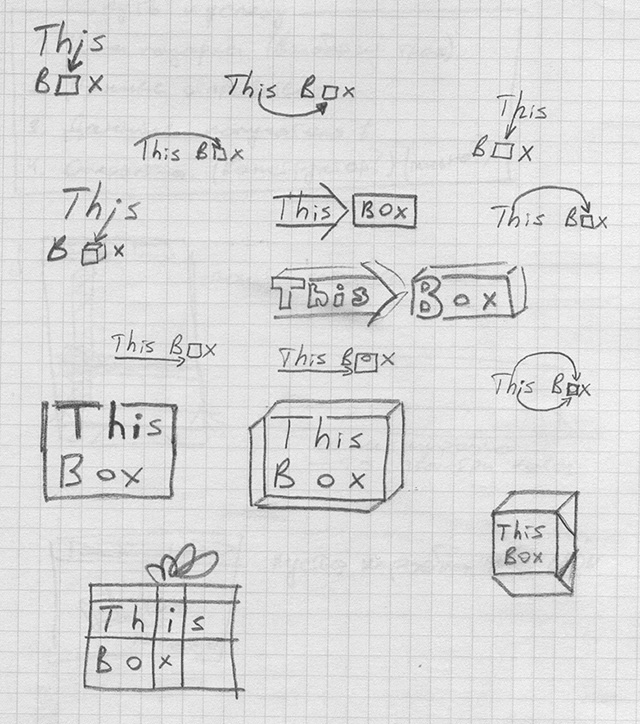 This
B□x
This B□x
This
B□x
This B□x
This
B□x
This BOX
This B□x
This Box
This B□x
This B□x
This B□x
This
Box
This
Box
This
Box
This
Box